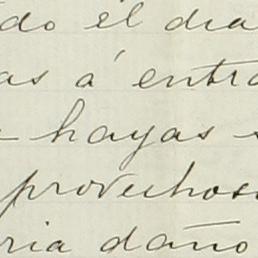 do el dia
as á entra
hayas
provechos
ria daño